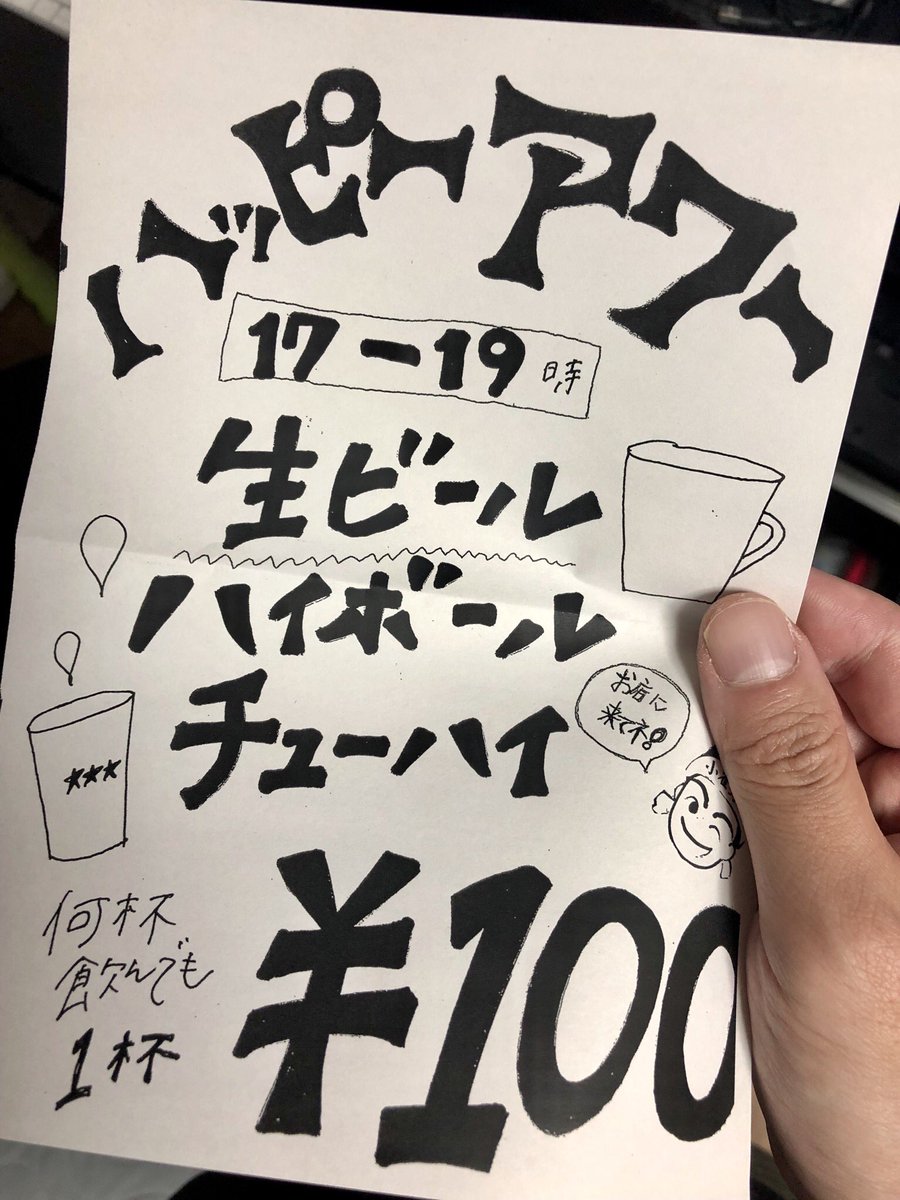 ハッピーアワー
17-19時
生ビール
ハイボール
チューハイ
お店に
来てネ!
***
何杯
飲んでも
1杯
¥100